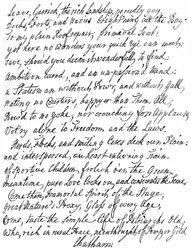 Leave, Garrick, the rich Landskip, proudly gay,
Docks, Forts, and Navies bright'ning all the Bay:
To my plain Roof repair, primaeval Seat!
yet here no Wonders your quick eye can meet,
Save, should you deem it wonderful, to find
Ambition cured, and an unpassion'd Mind:
a Statesman without Power, and without gall,
Hating no Courtiers, happier than Them all,
Bow'd to no yoke, nor crouching for applause,
Vot'ry alone to Freedom, and the Laws.
Herds, Flocks, and smiling Ceres deck our Plain:
and interspersed, an heart-enlivening Train
of Sportive Children, frolick o'er the Green,
meantime, pure Love looks on, and consecrates the Scene.
Come then, immortal Spirit of the Stage,
Great Nature's Proxy, Glass of every age!
Come, taste the Simple Life of Patriarchs Old,
Who, rich in rural Peace, ne'er thought of Pomp or Gold
Chatham